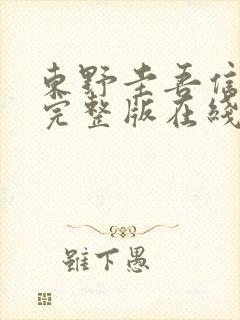 東野圭吾信
完整版在綫
雖下愚